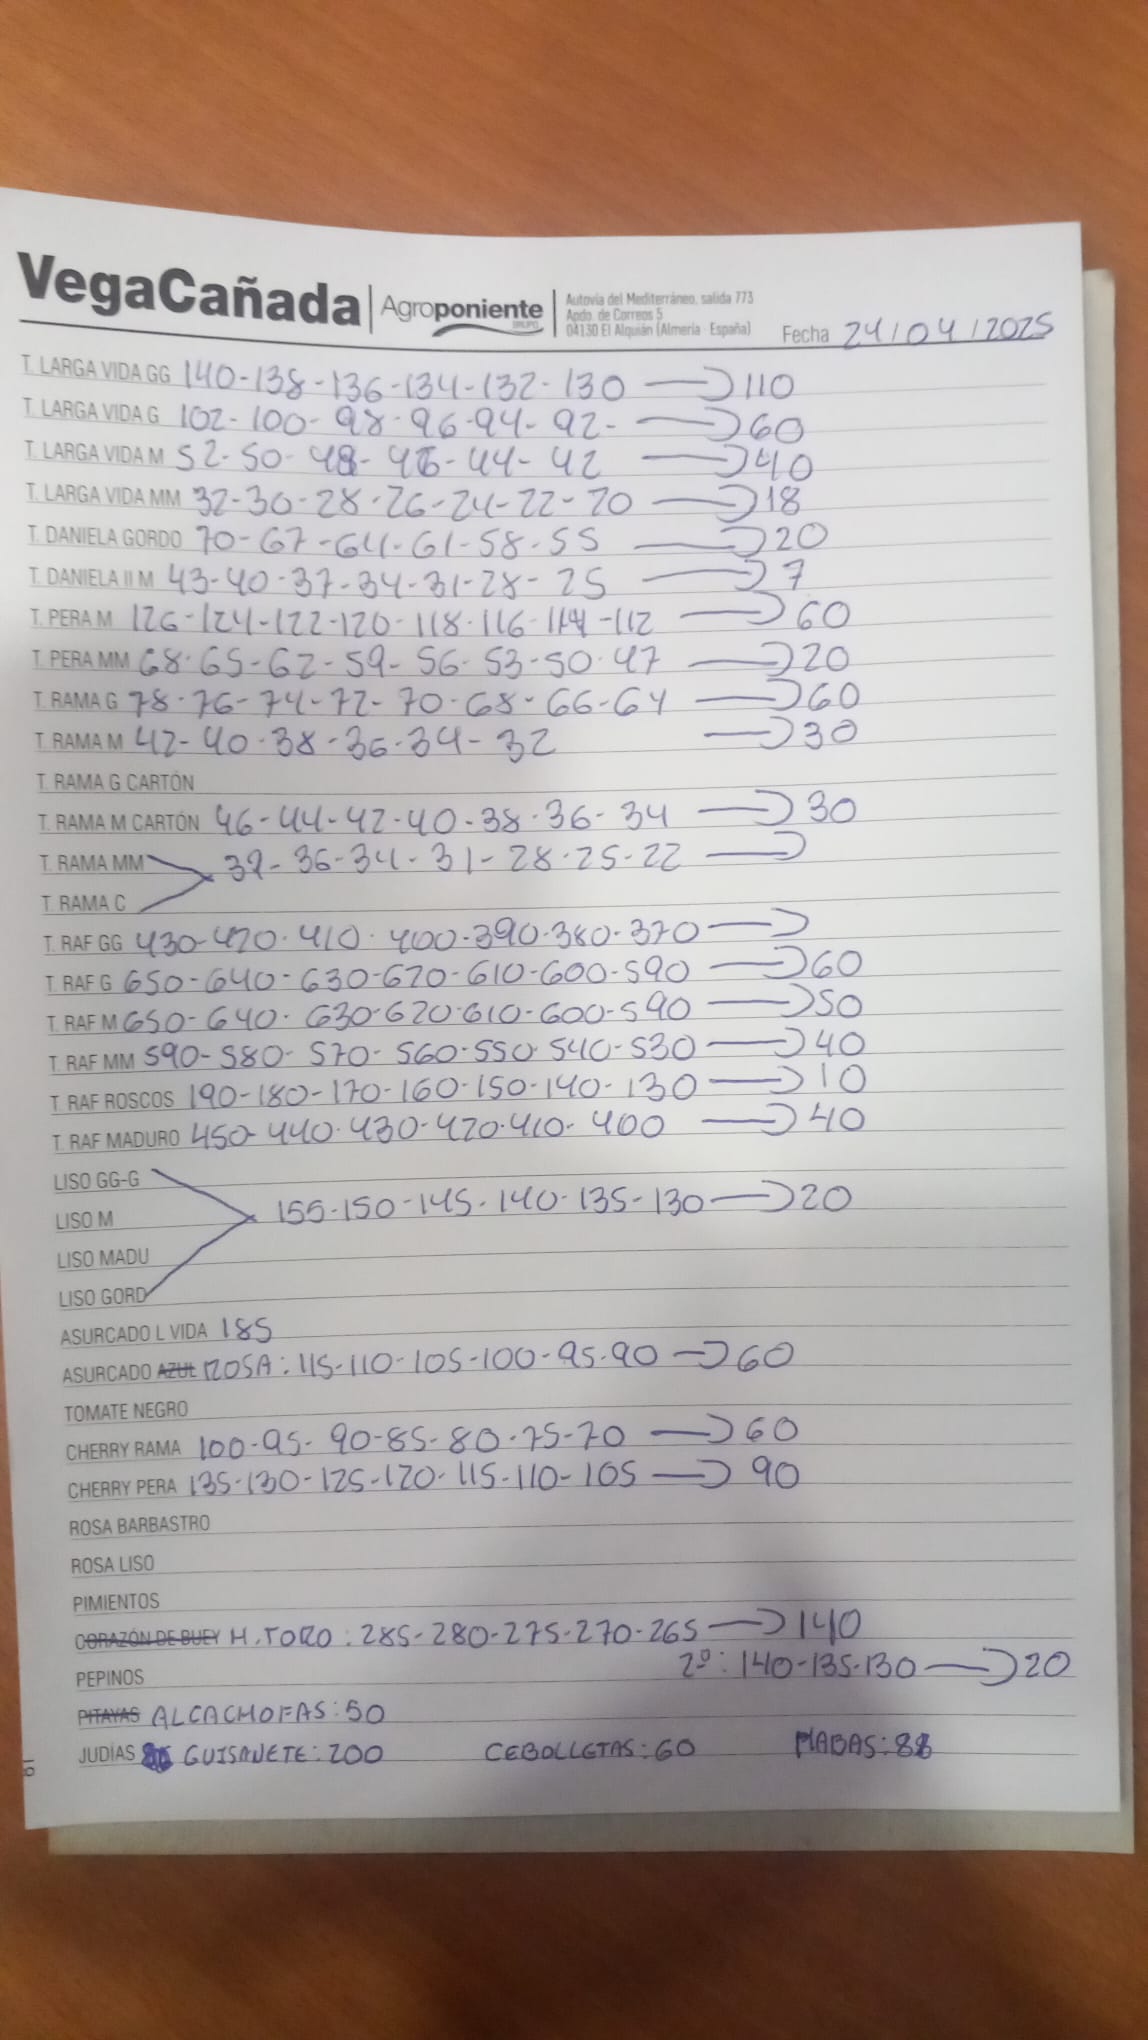 VegaCañada Agroponiente GRUPO
Autovía del Mediterráneo, salida 773
Apdo. de Correos 5
04130 El Alquián (Almería - España)
Fecha 24/04/2025
T. LARGA VIDA GG 140-138-136-134-132-130 → 110
T. LARGA VIDA G 102-100-98-96-94-92- → 60
T. LARGA VIDA M 52-50-48-46-44-42 → 40
T. LARGA VIDA MM 32-30-28-26-24-22-20 → 18
T. DANIELA GORDO 70-67-64-61-58-55 → 20
T. DANIELA II M 43-40-37-34-31-28-25 → 7
T. PERA M 126-124-122-120-118-116-114-112 → 60
T. PERA MM 68-65-62-59-56-53-50-47 → 20
T. RAMA G 78-76-74-72-70-68-66-64 → 60
T. RAMA M 42-40-38-36-34-32 → 30
T. RAMA G CARTÓN
T. RAMA M CARTÓN 46-44-42-40-38-36-34 → 30
T. RAMA MM 36-34-31-28-25-22 →
T. RAMA C
T. RAF GG 430-420-410-400-390-380-370 →
T. RAF G 650-640-630-620-610-600-590 → 60
T. RAF M 650-640-630-620-610-600-590 → 50
T. RAF MM 590-580-570-560-550-540-530 → 40
T. RAF ROSCOS 190-180-170-160-150-140-130 → 10
T. RAF MADURO 450-440-430-420-410-400 → 40
LISO GG-G
LISO M 155-150-145-140-135-130 → 20
LISO MADU
LISO GORD
ASURCADO L VIDA 185
ASURCADO AZUL ROSA: 115-110-105-100-95-90 → 60
TOMATE NEGRO
CHERRY RAMA 100-95-90-85-80-75-70 → 60
CHERRY PERA 135-130-125-120-115-110-105 → 90
ROSA BARBASTRO
ROSA LISO
PIMIENTOS
CORAZÓN DE BUEY H. TORO: 285-280-275-270-265 → 140
PEPINOS 2º: 140-135-130 → 20
PITAYAS ALCACHOFAS: 50
JUDÍAS GUISANETE: 200 CEBOLLETAS: 60 HABAS: 88